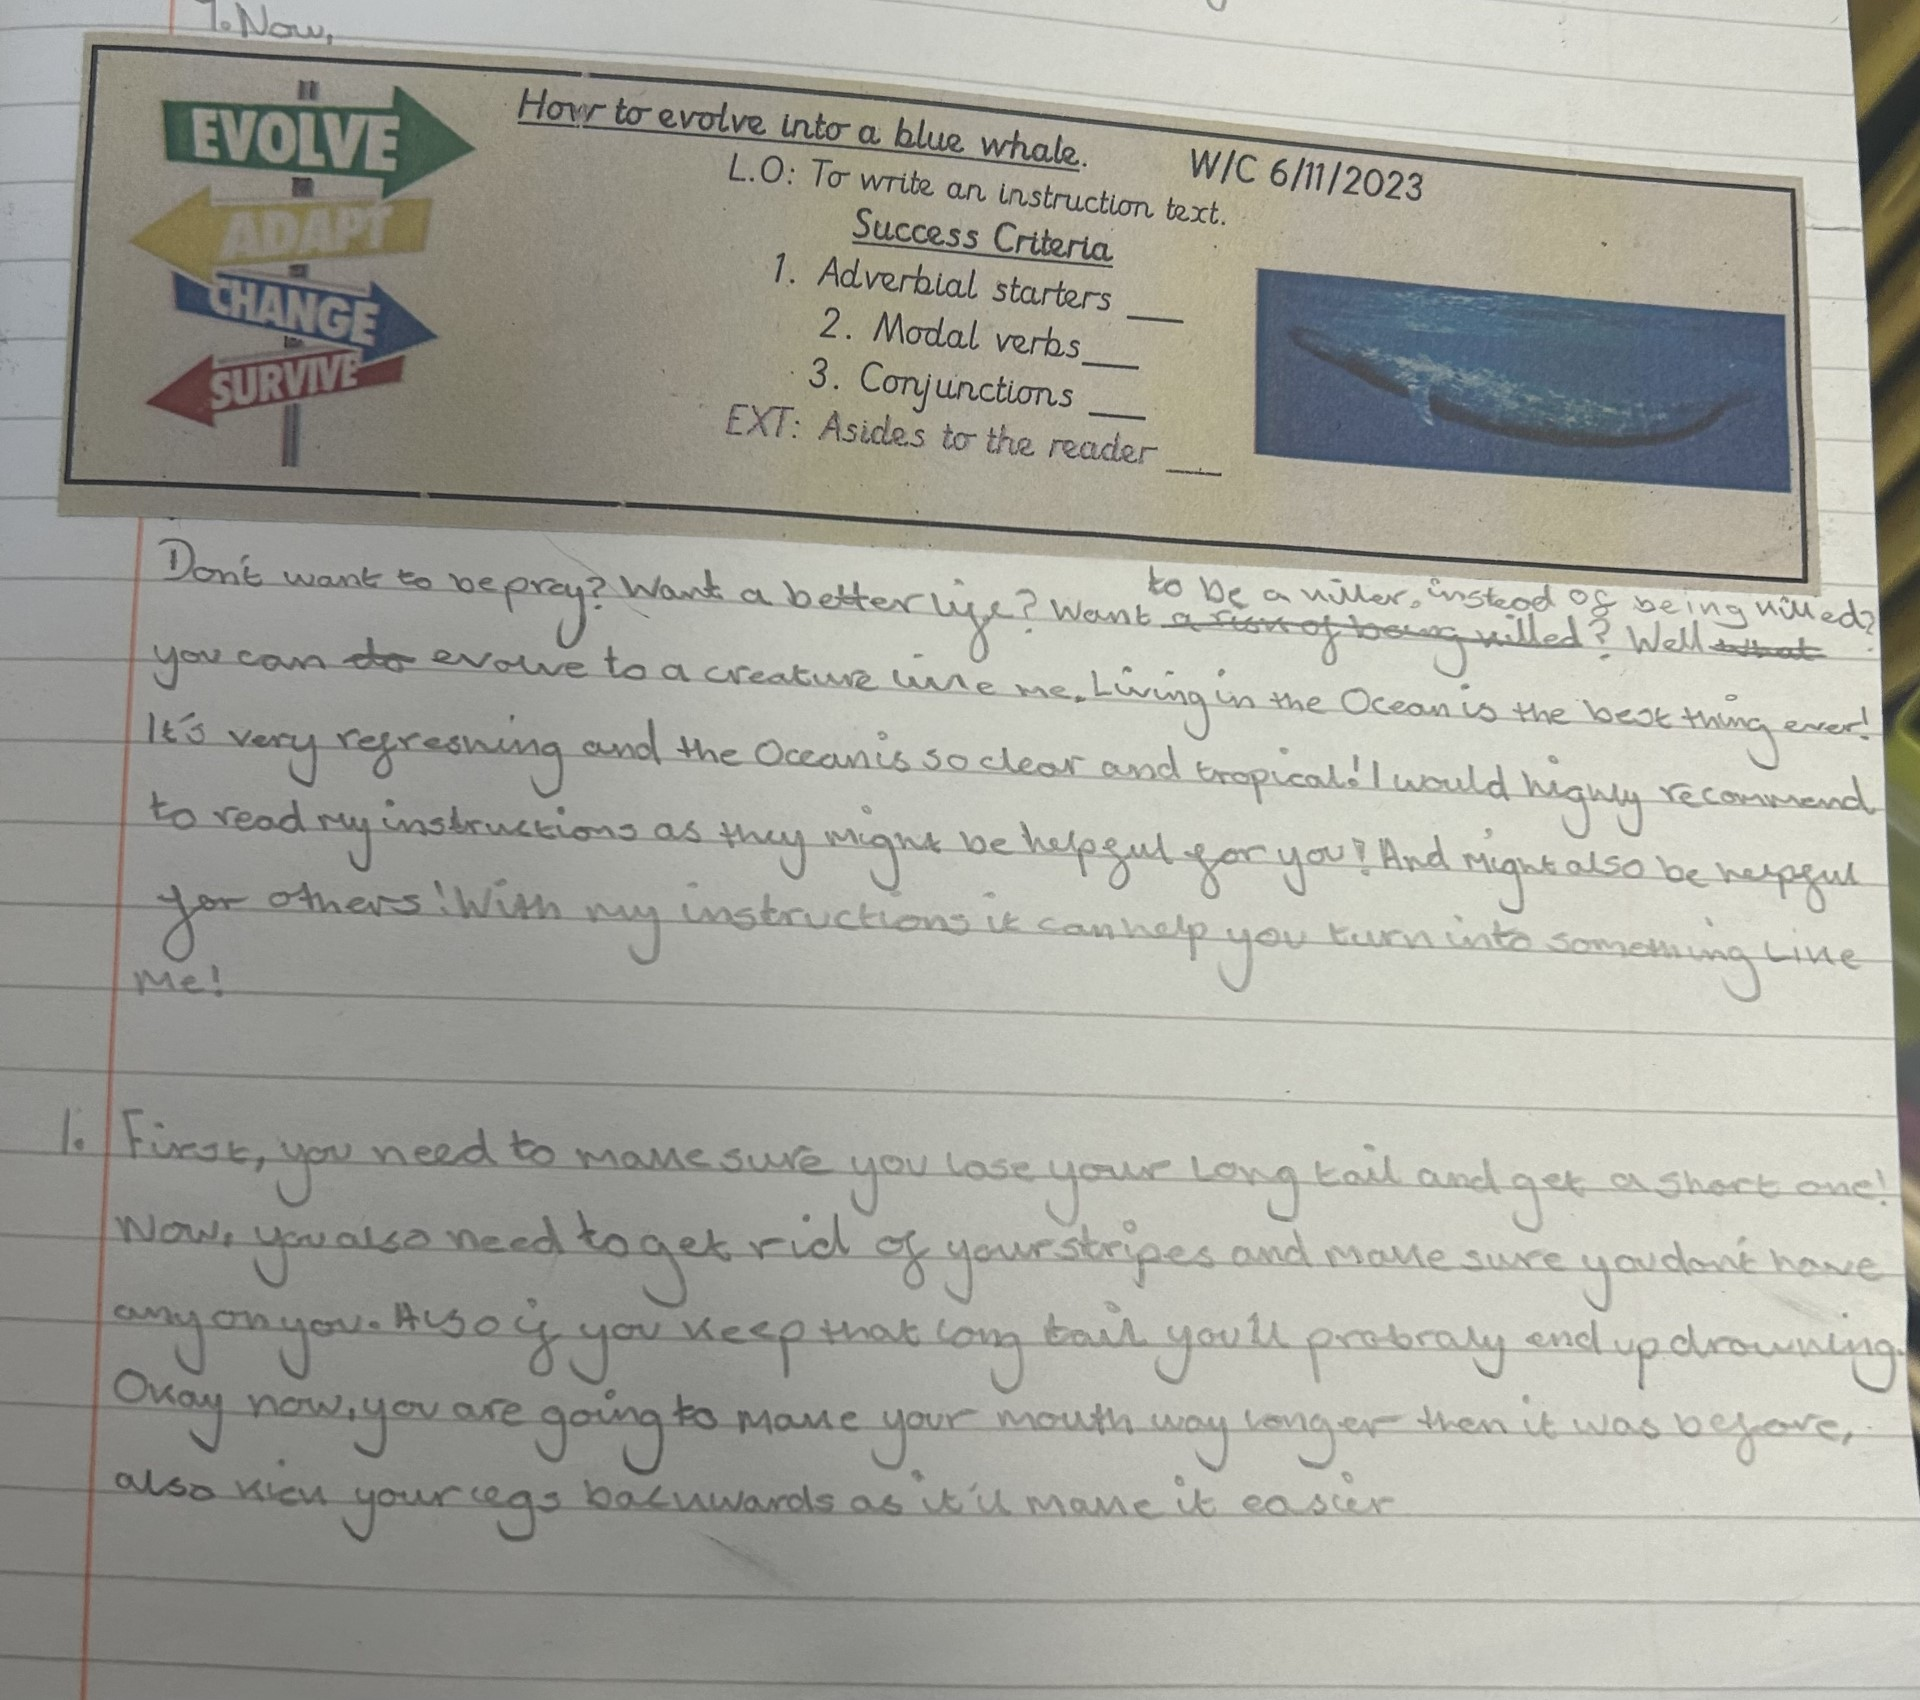 7. Now,
EVOLVE
ADAPT
CHANGE
SURVIVE
How to evolve into a blue whale.
W/C 6/11/2023
L.O: To write an instruction text.
Success Criteria
1. Adverbial starters ___
2. Modal verbs___
3. Conjunctions ___
EXT: Asides to the reader ___
to be a killer, instead of being killed?
Don't want to be prey? Want a better life? Want a risk of being killed? Well what
you can do evolve to a creature like me. Living in the Ocean is the best thing ever!
It's very refreshing and the Ocean is so clear and tropical! I would highly recommend
to read my instructions as they might be helpful for you! And might also be helpful
for others! With my instructions it can help you turn into something like
me!
1. First, you need to make sure you lose your long tail and get a short one!
Now, you also need to get rid of your stripes and make sure you don't have
any on you. Also if you keep that long tail you'll probraly end up drowning.
Okay now, you are going to make your mouth way longer then it was before,
also kick your legs backwards as it'll make it easier